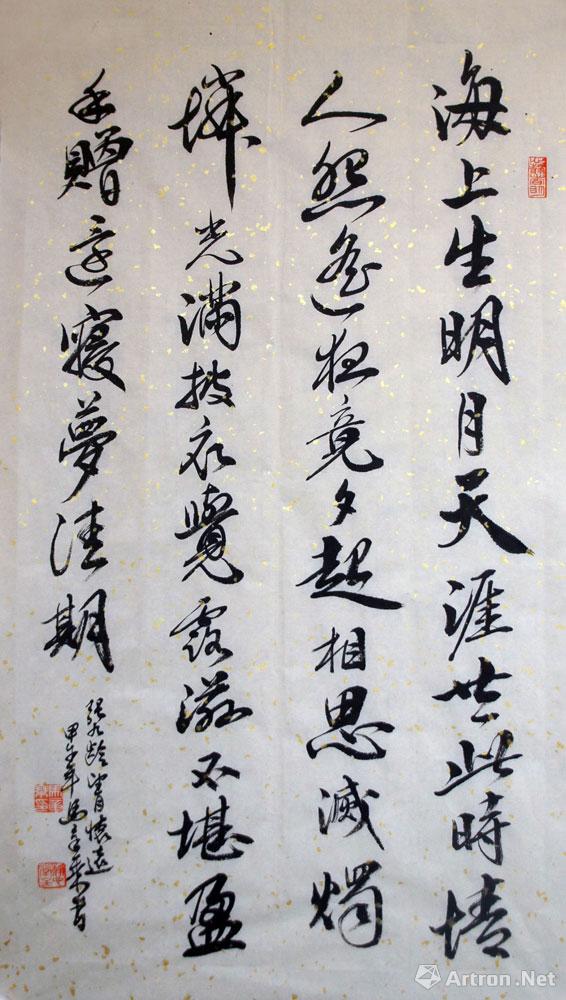 海上生明月天涯共此時情
人怨遙夜竟夕起相思滅燭
憐光滿披衣覺露滋不堪盈
手贈還寢夢佳期
張九齡望月懷遠
甲午年書
Artron.Net